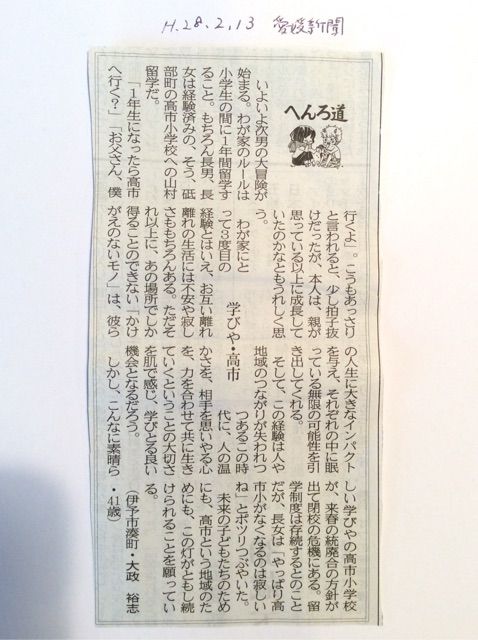 H.28.2.13 愛媛新聞
へんろ道
学びや・高市
いよいよ次男の大冒険が
始まる。わが家のルールは
小学生の間に1年間留学す
ること。もちろん長男、長
女は経験済みの、そう、砥
部町の高市小学校への山村
留学だ。
「1年生になったら高市
へ行く?」「お父さん、僕
行くよ」。こうもあっさり
と言われると、少し拍子抜
けだったが、本人は、親が
思っている以上に成長して
いたのかなともうれしく思
う。
わが家にと
って3度目の
経験とはいえ、お互い離れ
離れの生活には不安や寂し
さももちろんある。ただそ
れ以上に、あの場所でしか
得ることのできない「かけ
がえのないモノ」は、彼ら
の人生に大きなインパクト
を与え、それぞれの中に眠
っている無限の可能性を引
き出してくれる。
そして、この経験は人や
地域のつながりが失われつ
つあるこの時
代に、人の温
かさを、相手を思いやる心
を、力を合わせて共に生き
ていくということの大切さ
を肌で感じ、学びとる良い
機会となるだろう。
しかし、こんなに素晴ら
しい学びやの高市小学校
が、来春の統廃合の方針が
出て閉校の危機にある。留
学制度は存続するとのこと
だが、長女は「やっぱり高
市小がなくなるのは寂しい
ね」とポツリつぶやいた。
未来の子どもたちのため
にも、高市という地域のた
めにも、この灯がともし続
けられることを願ってい
る。
(伊予市湊町・大政 裕志
・41歳)